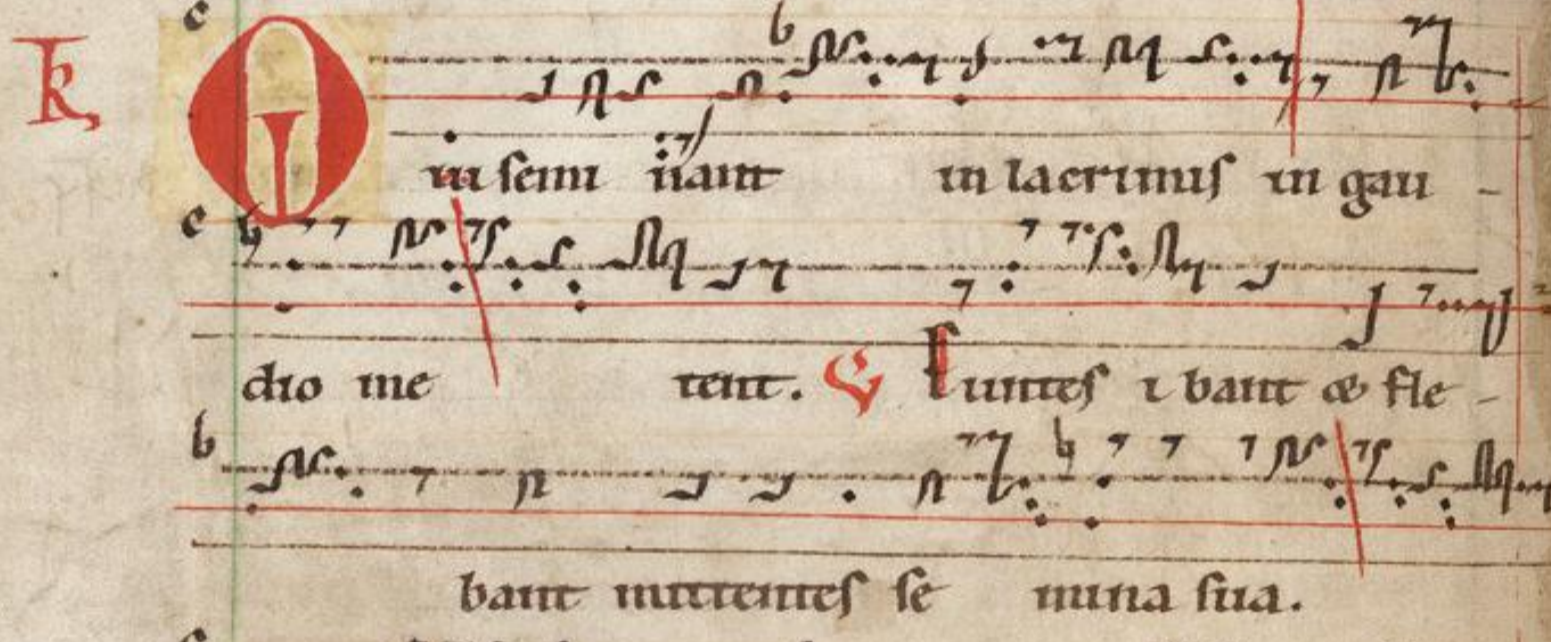 R Qui semi nant in lacrimis in gau -
dio me tent. V Euntes i bant & fle -
bant mittentes se mina sua.